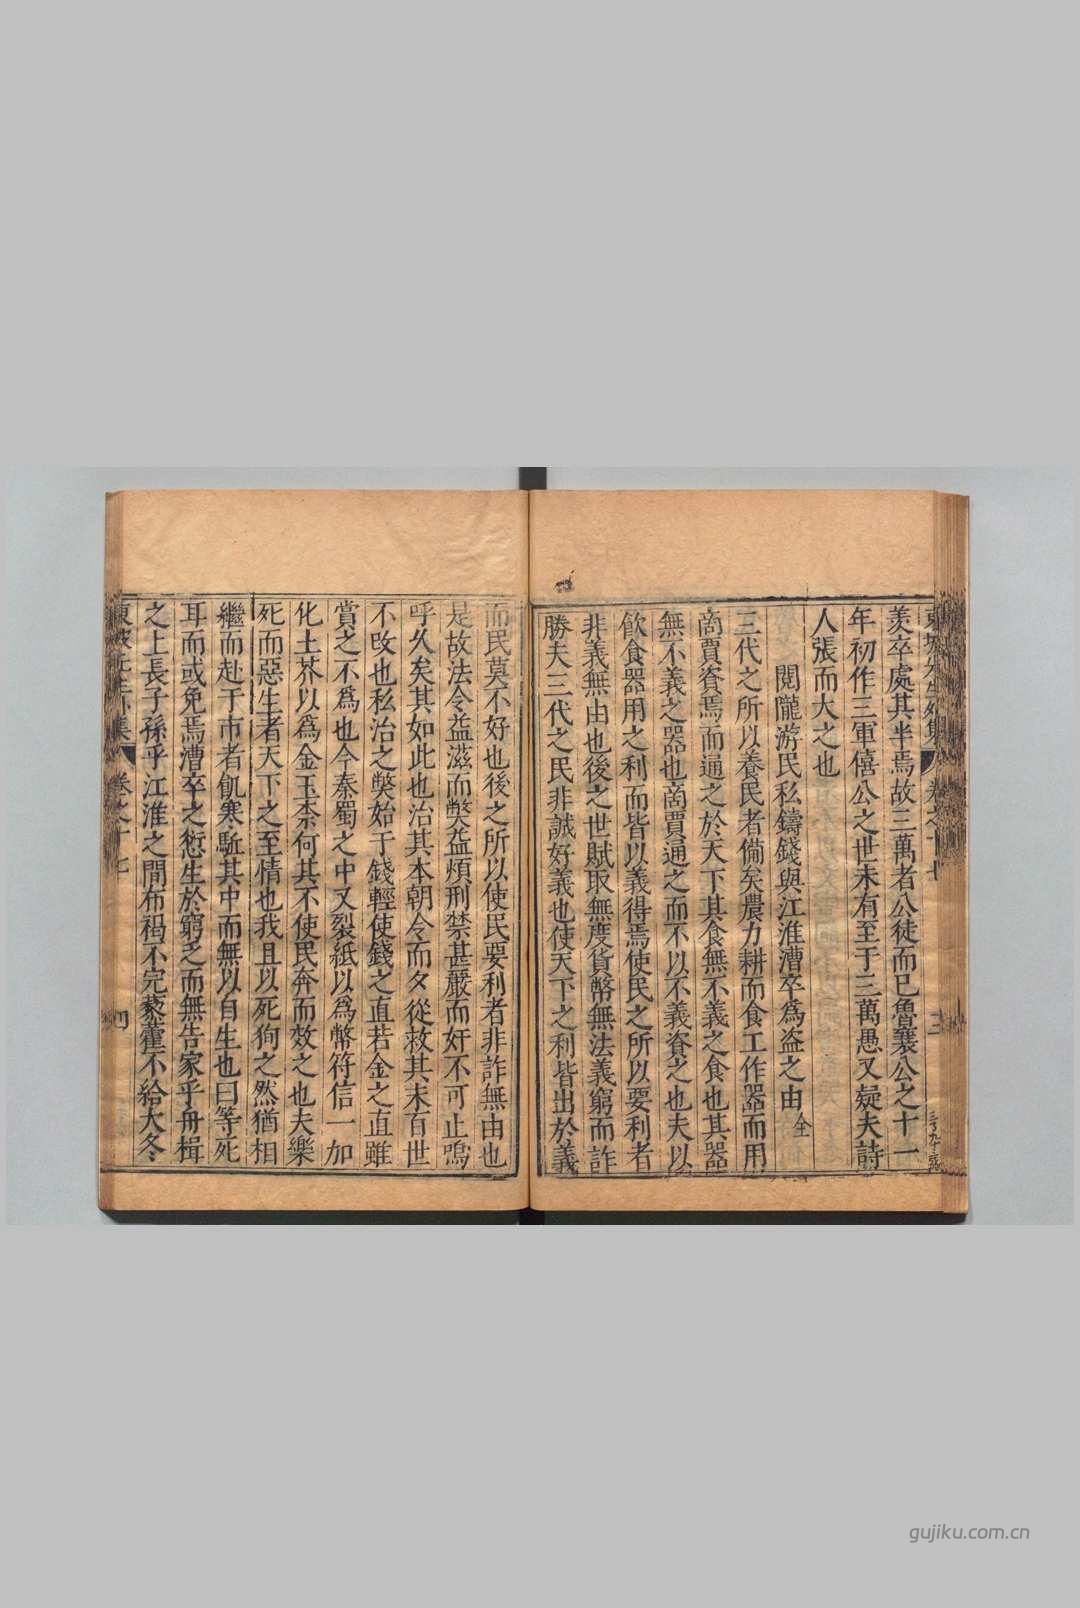 東坡先生外集 卷之十七 三
羨卒處其半焉故三萬者公徒而已魯襄公之十一
年初作三軍僖公之世未有至于三萬愚又疑夫詩
人張而大之也
閱隴游民私鑄錢與江淮漕卒為盜之由 仝
三代之所以養民者備矣農力耕而食工作器而用
商賈資焉而通之於天下其食無不義之食也其器
無不義之器也商賈通之而不以不義資之也夫以
飲食器用之利而皆以義得焉使民之所以要利者
非義無由也後之世賦取無度貨幣無法義窮而詐
勝夫三代之民非誠好義也使天下之利皆出於義
而民莫不好也後之所以使民要利者非詐無由也
是故法令益滋而獘益煩刑禁甚嚴而奸不可止嗚
呼久矣其如此也治其本朝令而夕從救其末百世
不改也私治之獘始于錢輕使錢之直若金之直雖
賞之不爲也今秦蜀之中又裂紙以爲幣符信一加
化土芥以爲金玉柰何其不使民奔而效之也夫樂
死而惡生者天下之至情也我且以死狥之然猶相
繼而赴于市者飢寒駈其中而無以自生也曰等死
耳而或免焉漕卒之愆生於窮乏而無告家乎舟楫
之上長子孫乎江淮之間布褐不完藜藿不給大冬
東坡先生外集 卷之十七 四
gujiku.com.cn